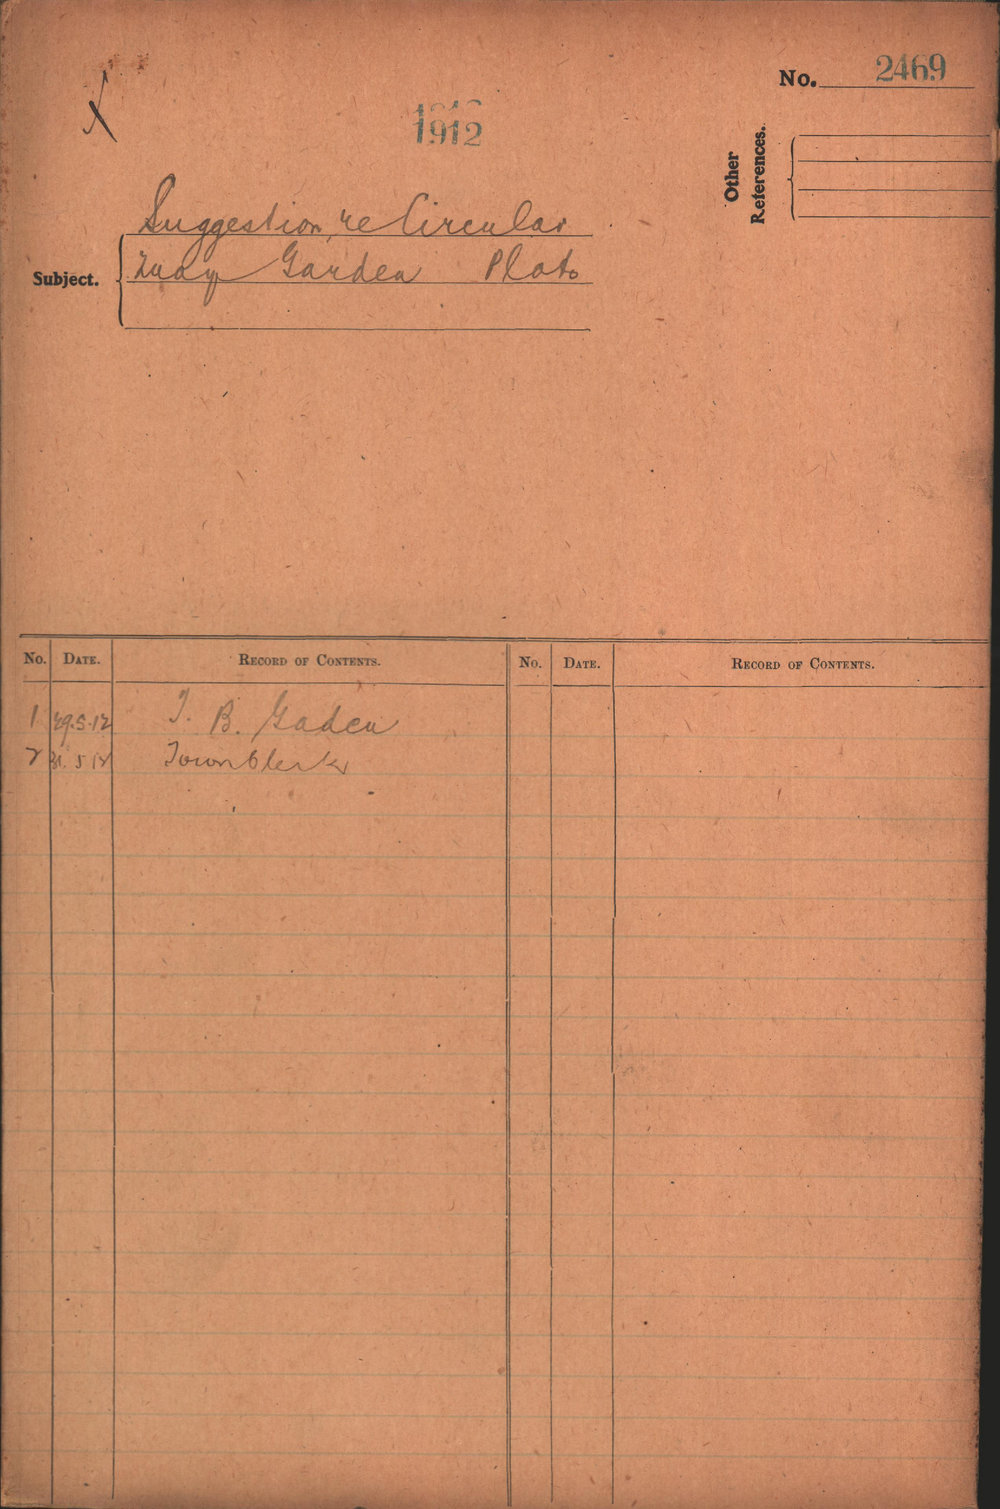 No. 2469
1912
Other
References.
Subject.
Suggestion re Circular
Quay Garden Plots
No. DATE. RECORD OF CONTENTS. No. DATE. RECORD OF CONTENTS.
1 29.5.12 T. B. Gaden
2 31.5.12 Town Clerk